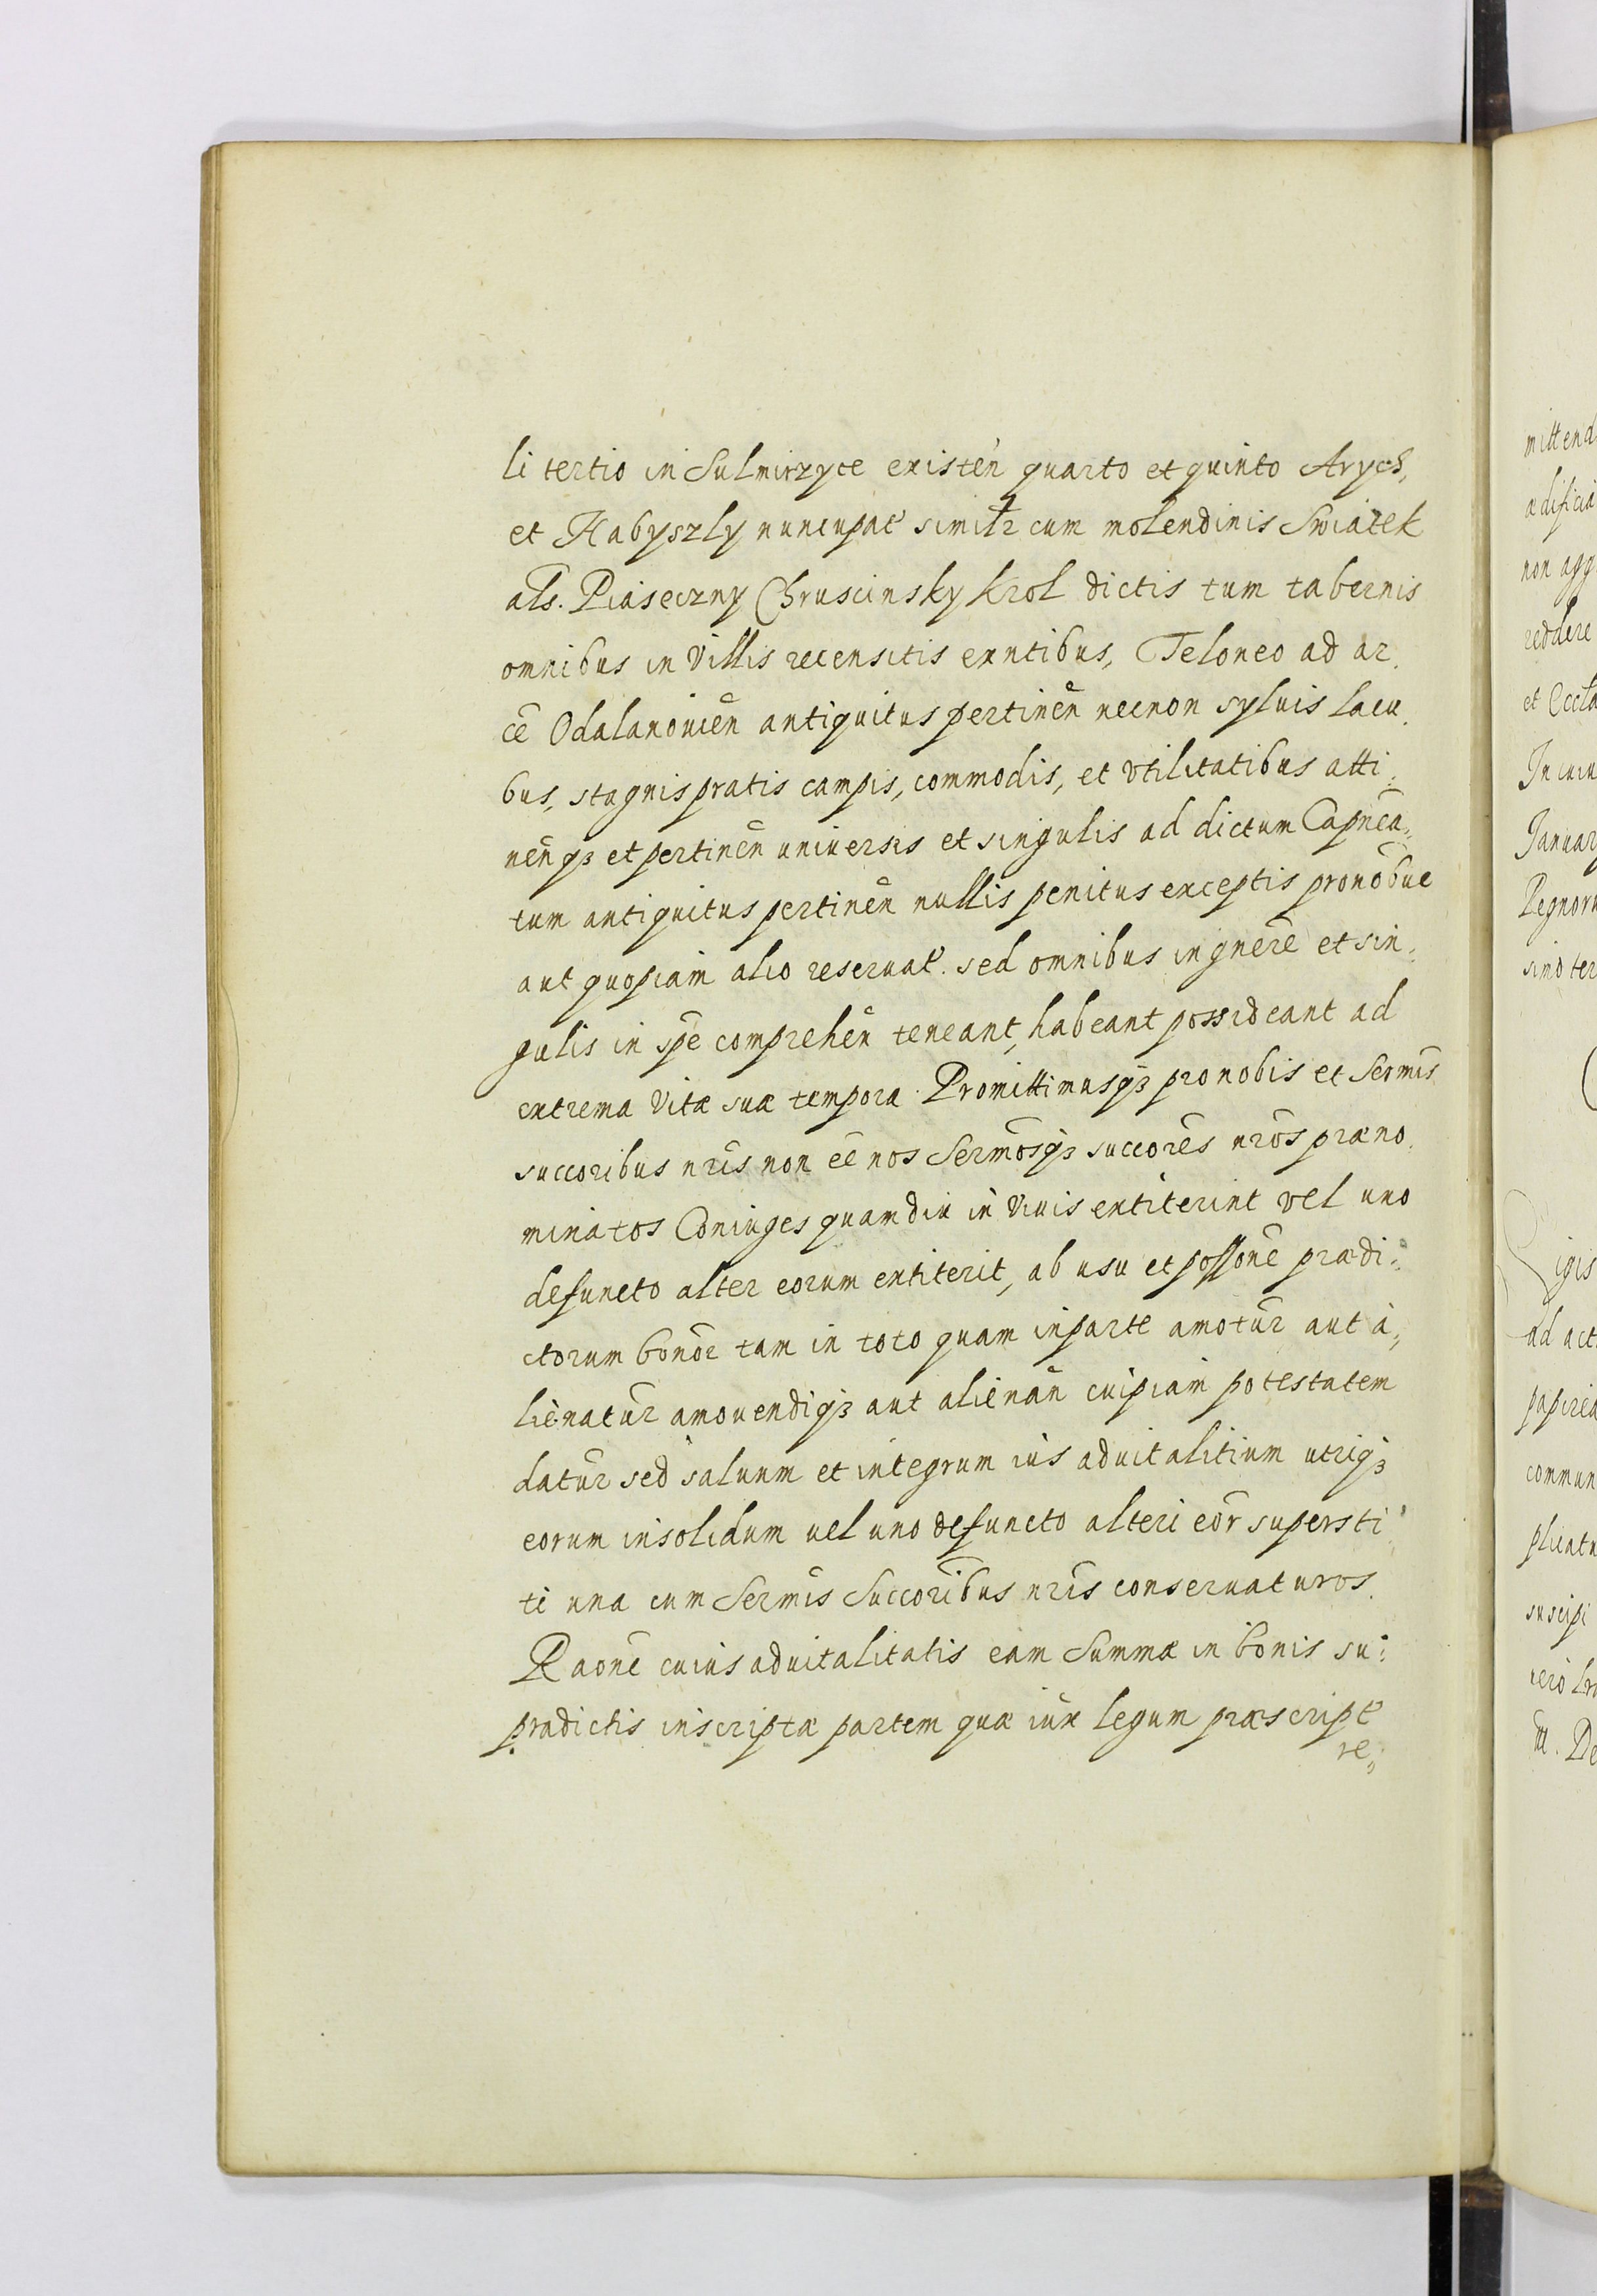 li tertio in Sulmirzyce existen̄ quarto et quinto Arych,
et Habyszly nuncupat̄ similr̄ cum molendinis Swiątek
al̄s. Piaseczny Chruscinsky Krol dictis tum tabernis
omnibus in Villis recensitis exntibus, Teloneo ad ar
cē Odalanouien̄ antiquitus pertinen̄ necnon syluis lacu
bus, stagnis pratis campis, commodis, et vtilitatibus atti
nen̄qꝫ et pertinen̄ uniuersis et singulis ad dictum Capnēa
tum antiquitus pertinen̄ nullis penitus exceptis pro nob̄ue
aut quopiam alio reseruat̄. sed omnibus in gn̄ere et sin
gulis in sp̄e comprehen̄ teneant, habeant possideant ad
extrema Vitæ suæ tempora. Promittimusqꝫ pro nobis et Sermis̄
succoribus nr̄is non eē nos Serm̄osqꝫ succorēs nr̄os præno
minatos Coniuges quamdiu in Viuis extiterint vel uno
defuncto alter eorum extiterit, ab usu et possonē prædi
ctorum bonor̄ tam in toto quam in parte amotur̄ aut a
lienatur̄ amouendiqꝫ aut alienan̄ cuipiam potestatem
datur̄ sed saluum et integrum ius aduitalitium utriqꝫ
eorum insolidum uel uno defuncto alteri eor̄ supersti
ti una cum Serm̄is Succorībus nr̄is conseruaturos
Raonē cuius aduitalitatis eam Summæ in bonis su
prædictis inscriptæ partem quæ iux̄ legum præscript̄
re
mittend
ædificia
non agg
reddere
et Eccla
In cuiu
Januar
Regnoru
simo ter
igis
ad act
papirea
commun
plicatu
suscipi
vero lr
m. De